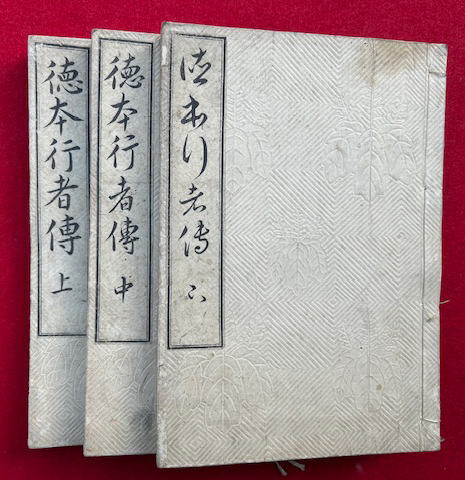 徳本行者傳 上
徳本行者傳 中
徳本行者傳 下